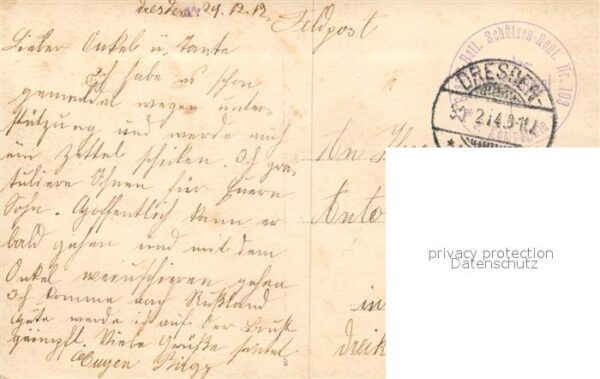 Dresden 29.12.12
Feldpost
Lieber Onkel u. Tante
Ich habe es schon
gemeldet wegen unter-
stützung und werde auch
ein Zettel schicken. Ich gra-
tuliere Ihnen für Euern
Sohn. Hoffentlich kann er
bald gehen und mit dem
Onkel gehen
Ich komme nach Rußland
Heute werde ich auf der Brust
geimpft. Viele Grüße sendet
Eugen
Batl. Schützen-Regt. Nr. 108
DRESDEN-
An
Anto
in
Dreik
privacy protection
Datenschutz